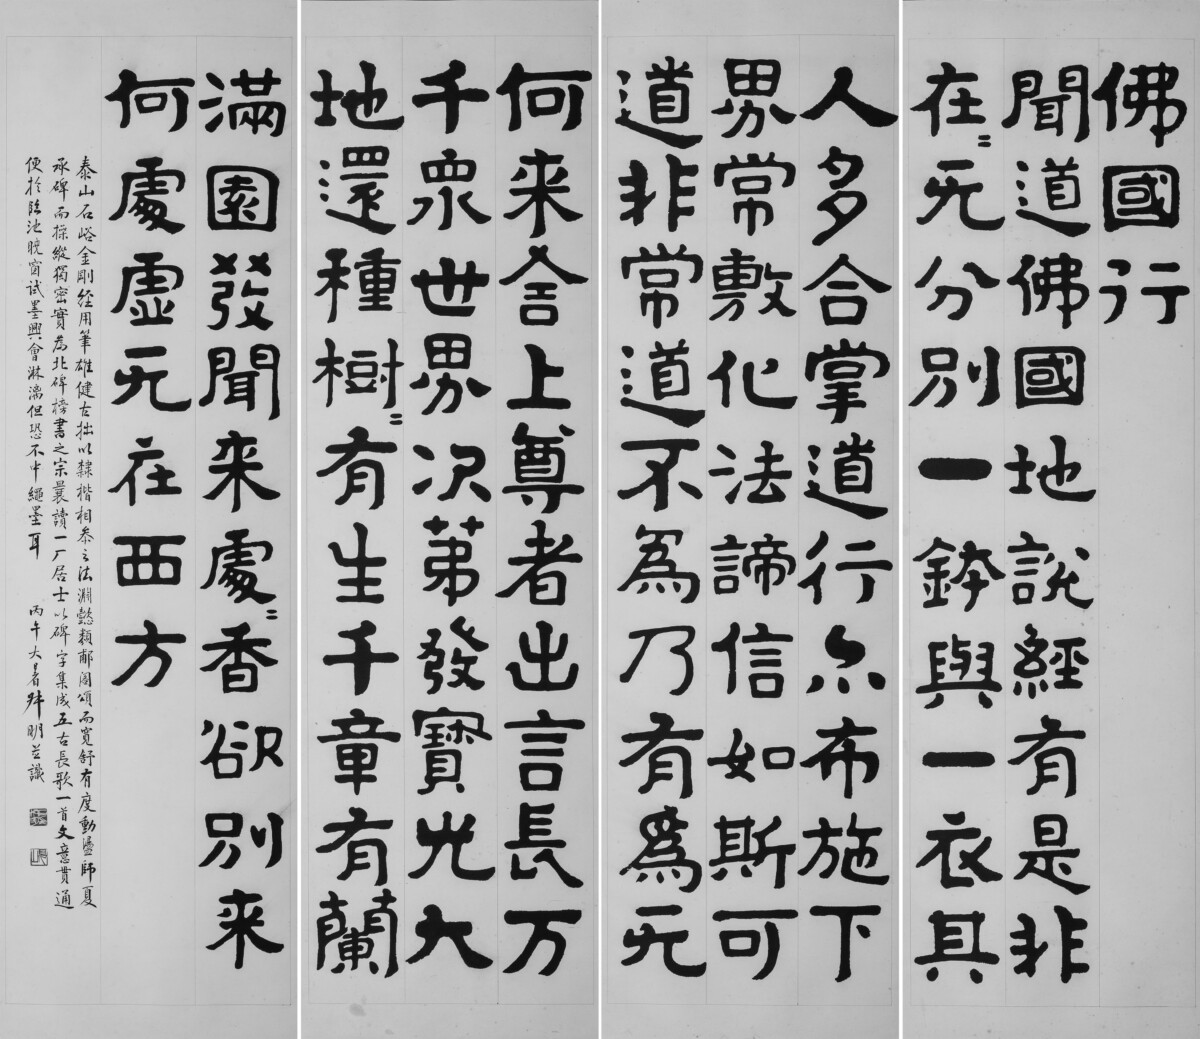 佛國行
聞道佛國地說經有是非
在〻无分別一鉢與一衣其
人多合掌道行尒布施下
界常敷化法諦信如斯可
道非常道不為乃有為无
何来舍上尊者出言長万
千眾世界次第發寶光大
地還種樹〻有生千章有蘭
滿園發聞来處〻香欲別来
何處虛无在西方
泰山石峪金剛經用筆雄健古拙以隸楷相參之法淵懿類郙閣頌而寬舒有度動盪師夏
承碑而操縱獨密實為北碑榜書之宗曩讀一厂居士以碑字集成五古長歌一首文意貫通
便於臨池晚窗試墨興會淋漓但恐不中繩墨耳 丙午大暑 明並識